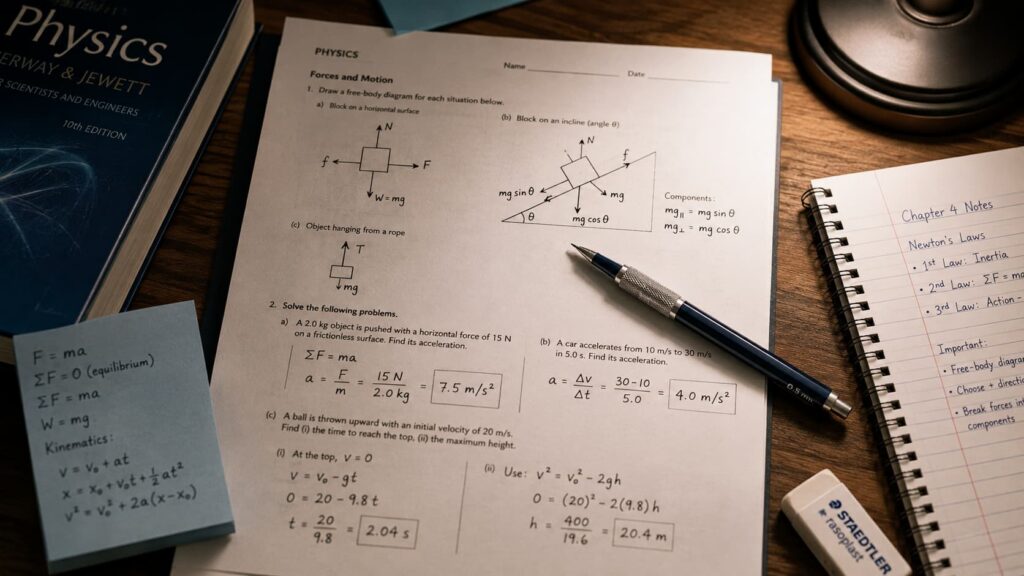 Physics
& JEWETT
SCIENTISTS AND ENGINEERS
10th EDITION
PHYSICS
Name
Date
Forces and Motion
1. Draw a free-body diagram for each situation below.
a) Block on a horizontal surface
N
f
F
W = mg
(b) Block on an incline (angle θ)
N
f
mg sin θ
mg
θ
mg cos θ
Components:
mg∥ = mg sin θ
mg⊥ = mg cos θ
(c) Object hanging from a rope
T
mg
2. Solve the following problems.
a) A 2.0 kg object is pushed with a horizontal force of 15 N
on a frictionless surface. Find its acceleration.
ΣF = ma
a = F/m = 15 N/2.0 kg = 7.5 m/s²
(b) A car accelerates from 10 m/s to 30 m/s
in 5.0 s. Find its acceleration.
a = Δv/Δt = 30-10/5.0 = 4.0 m/s²
(c) A ball is thrown upward with an initial velocity of 20 m/s.
Find (i) the time to reach the top, (ii) the maximum height.
(i) At the top, v = 0
v = v₀ - gt
0 = 20 - 9.8 t
t = 20/9.8 = 2.04 s
(ii) Use: v² = v₀² - 2gh
0 = (20)² - 2(9.8) h
h = 400/19.6 = 20.4 m
F = ma
ΣF = 0 (equilibrium)
ΣF = ma
W = mg
Kinematics:
v = v₀ + at
x = x₀ + v₀t + ½at²
v² = v₀² + 2a(x-x₀)
0.5
Chapter 4 Notes
Newton's Laws
• 1st Law: Inertia
• 2nd Law: ΣF = ma
• 3rd Law: Action -
Important:
• Free-body
• Choose +
• Break forces
components
STAEDTLER
rasoplast